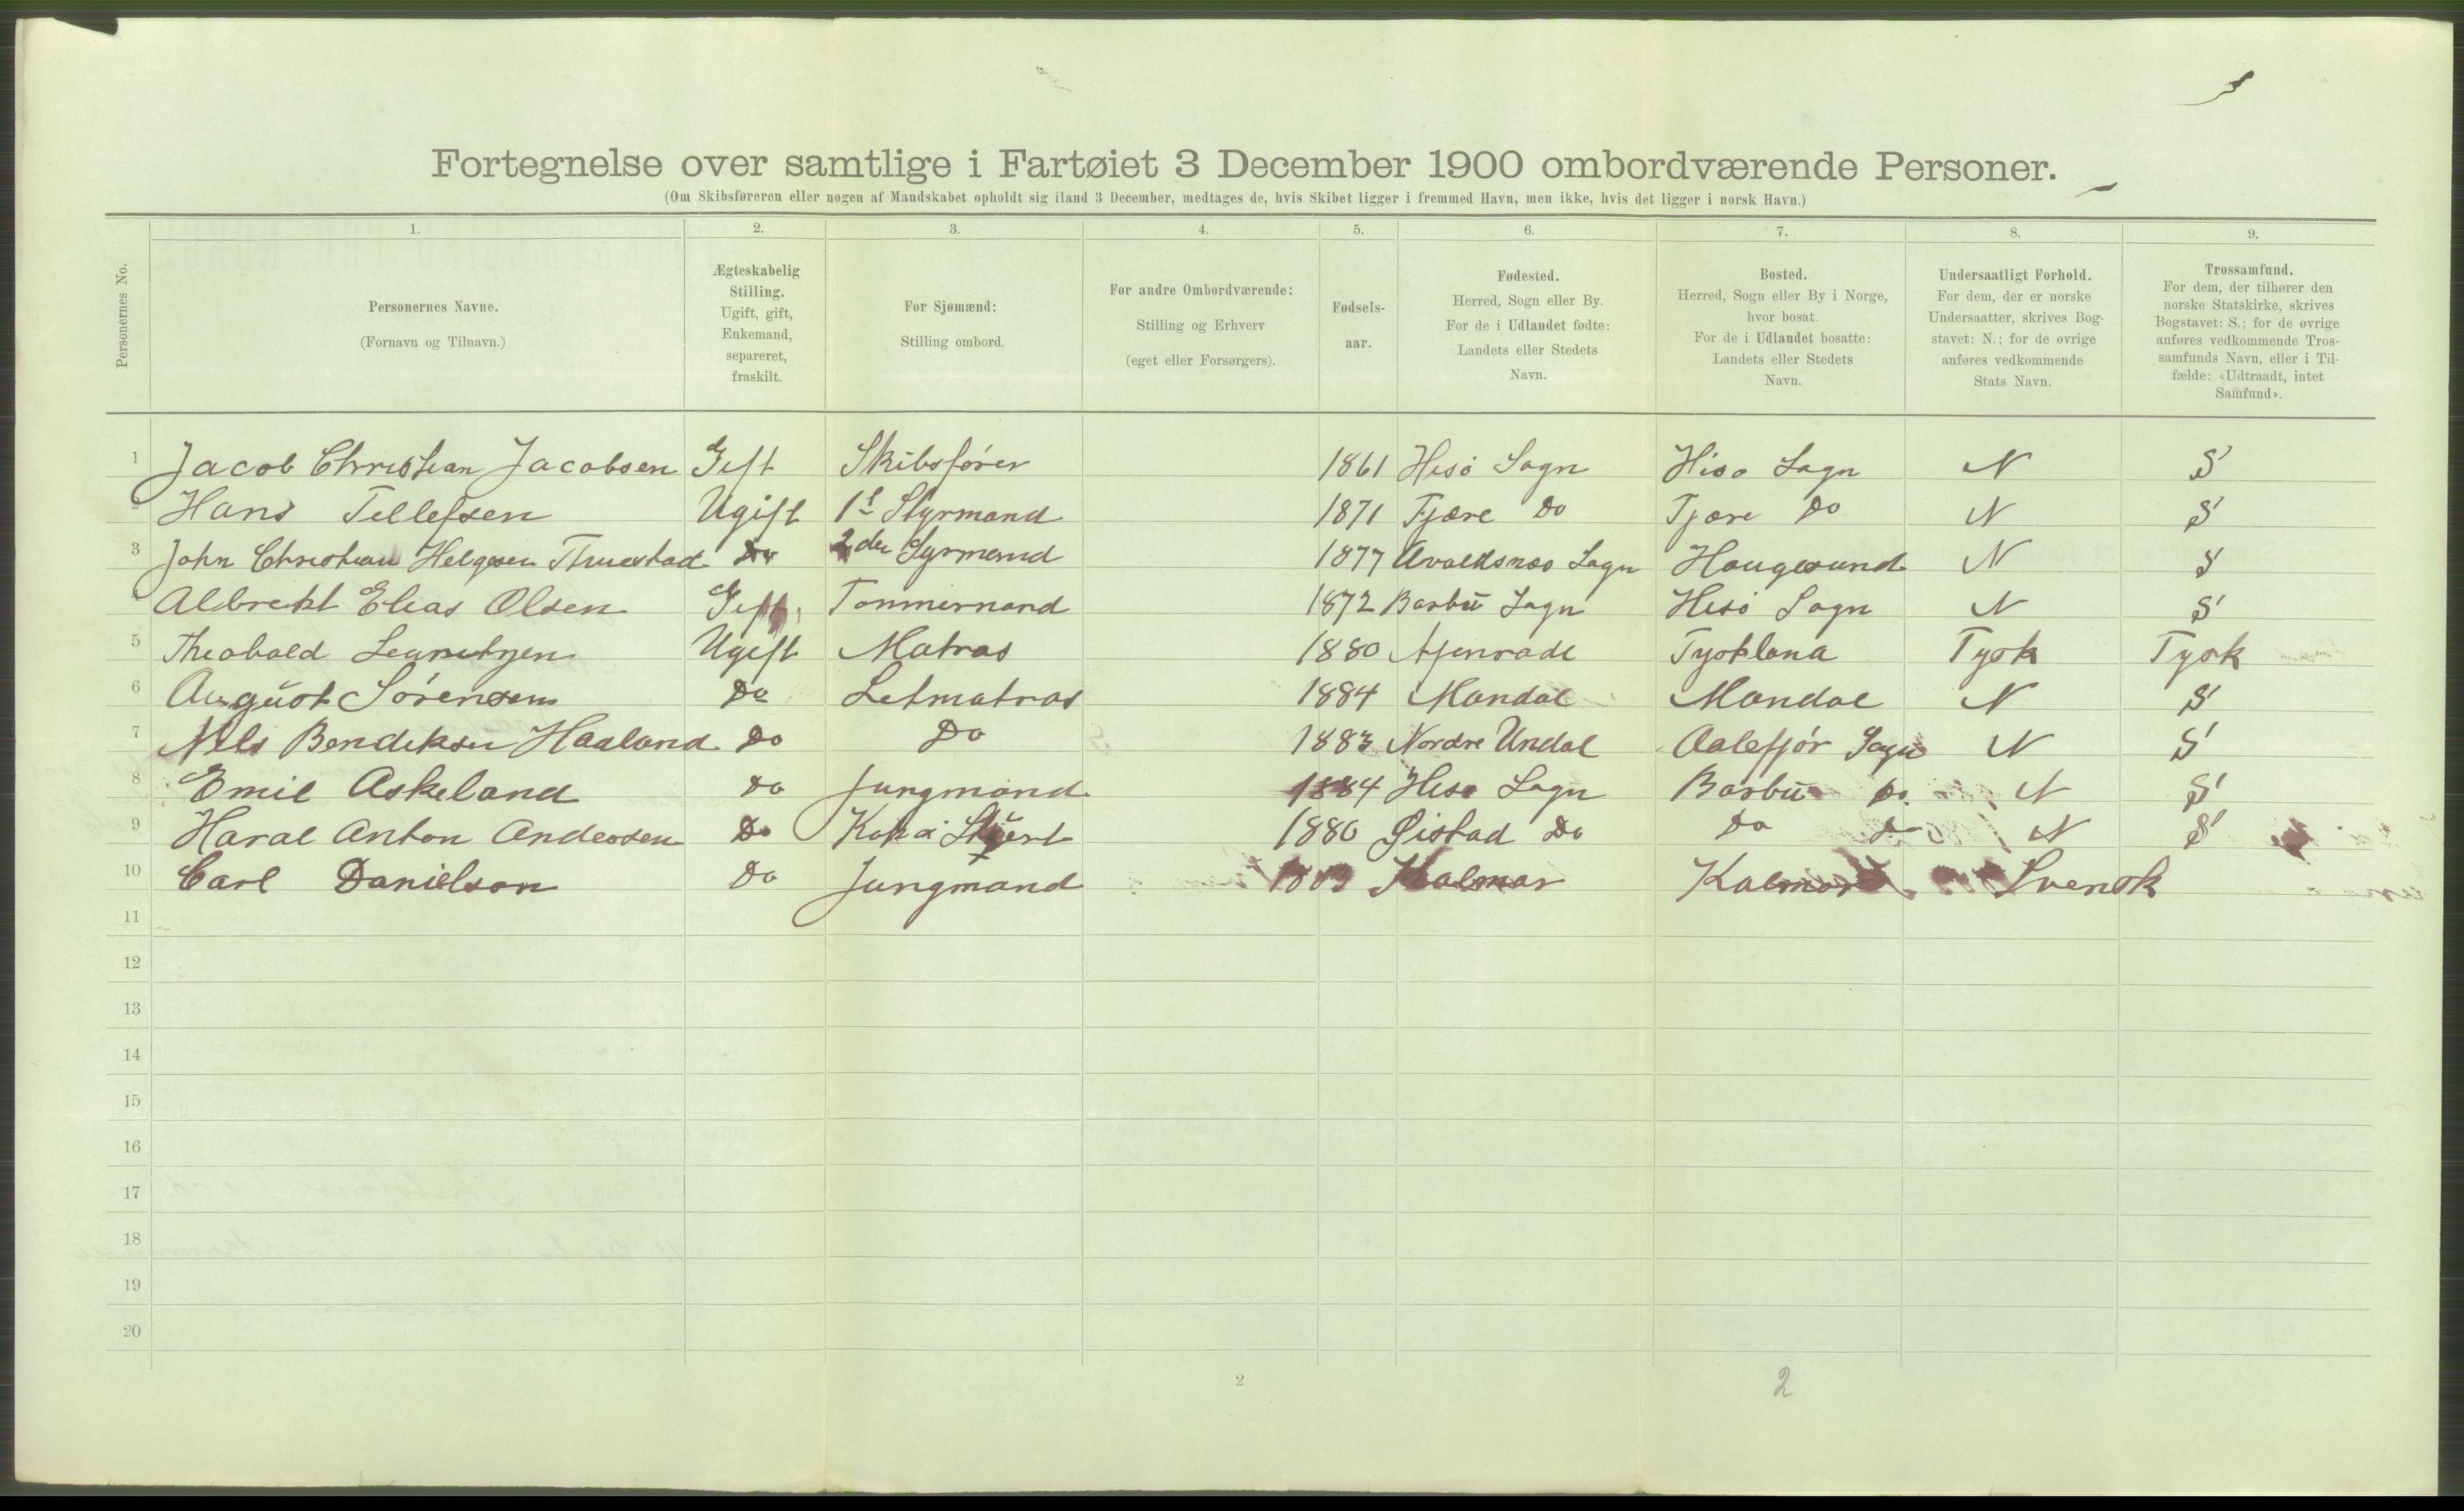 Fortegnelse over samtlige i Fartøiet 3 December 1900 ombordværende Personer.
(Om Skibsføreren eller nogen af Mandskabet opholdt sig iland 3 December, medtages de, hvis Skibet ligger i fremmed Havn, men ikke, hvis det ligger i norsk Havn.)
Personernes No.
1.
Personernes Navne.
(Fornavn og Tilnavn.)
2.
Ægteskabelig
Stilling.
Ugift, gift,
Enkemand,
separeret,
fraskilt.
3.
For Sjømænd:
Stilling ombord.
4.
For andre Ombordværende:
Stilling og Erhverv
(eget eller Forsørgers).
5.
Fødsels-
aar.
6.
Fødested.
Herred, Sogn eller By.
For de i Udlandet fødte:
Landets eller Stedets
Navn.
7.
Bosted.
Herred, Sogn eller By i Norge,
hvor bosat.
For de i Udlandet bosatte:
Landets eller Stedets
Navn.
8.
Undersaatligt Forhold.
For dem, der er norske
Undersaatter, skrives Bog-
stavet: N.; for de øvrige
anføres vedkommende
Stats Navn.
9.
Trossamfund.
For dem, der tilhører den
norske Statskirke, skrives
Bogstavet: S.; for de øvrige
anføres vedkommende Tros-
samfunds Navn, eller i Til-
fælde: «Udtraadt, intet
Samfund».
1 Jacob Christian Jacobsen Gift Skibsfører 1861 Hisö Sogn Hisö Sogn N S
2 Hans Tellefsen Ugift 1st Styrmand 1871 Fjære Do Fjære Do N S
3 John Christian Helgesen Do 2den Syrmand 1877 Avaldsnes Sogn Haugesund N S
Albrekt Elias Olsen Gift Tommermand 1872 Barbu Sogn Hisö Sogn N S
5 Theobald Ugift Matros 1880 Apenrade Tyskland Tysk Tysk
6 August Sörensen Do Letmatros 1884 Mandal Mandal N S
7 Nils Bendiksen Haaland Do Do 1883 Nordre Undal Aalefjær Sogn N S
8 Emil Askeland Do Jungmand 1884 Hisö Sogn Barbu Do N S
9 Haral Anton Andersen Do Kok & Stuert 1880 Øistad Do Do Do N S
10 Carl Danielson Do Jungmand Kalmar Kalmar Svensk
11
12
13
14
15
16
17
18
19
20
2
2